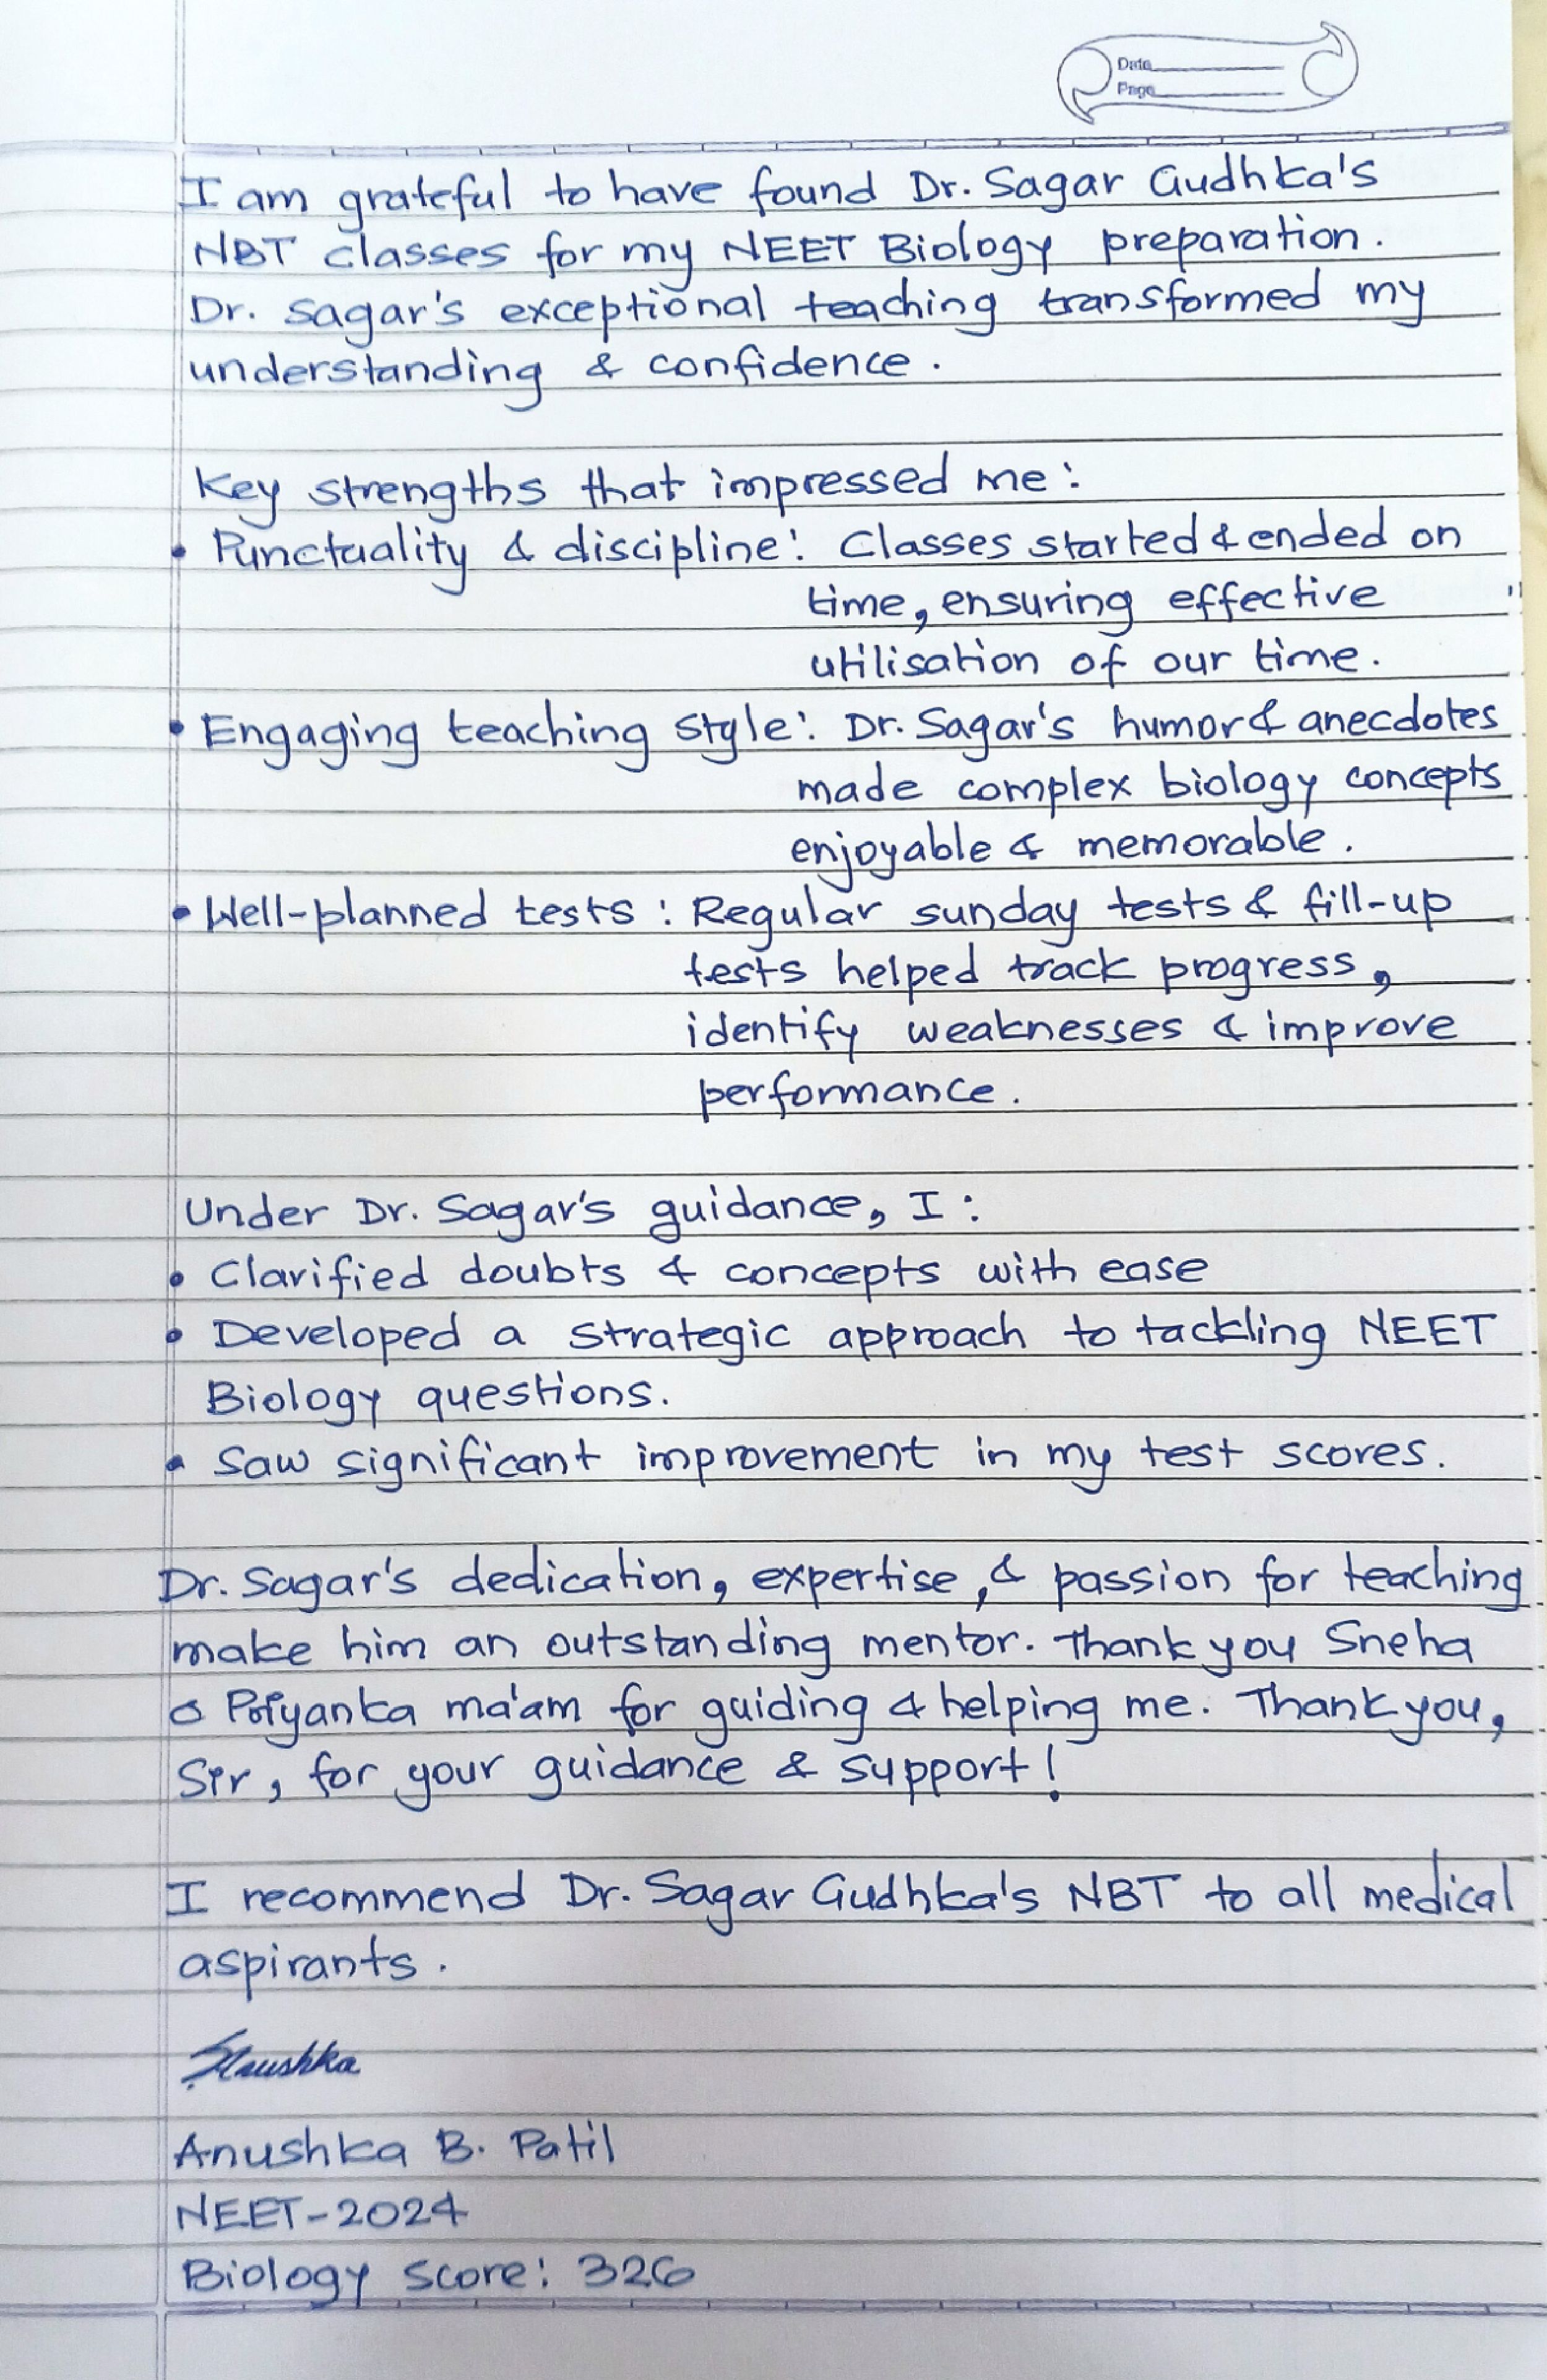 Date
Page
I am grateful to have found Dr. Sagar Gudhka's
NBT classes for my NEET Biology preparation.
Dr. Sagar's exceptional teaching transformed my
understanding & confidence.
Key strengths that impressed me:
• Punctuality & discipline: Classes started & ended on
time, ensuring effective
utilisation of our time.
• Engaging teaching style: Dr. Sagar's humor & anecdotes
made complex biology concepts
enjoyable & memorable.
• Well-planned tests: Regular sunday tests & fill-up
tests helped track progress,
identify weaknesses & improve
performance.
Under Dr. Sagar's guidance, I:
• Clarified doubts & concepts with ease
• Developed a strategic approach to tackling NEET
Biology questions.
• Saw significant improvement in my test scores.
Dr. Sagar's dedication, expertise, & passion for teaching
make him an outstanding mentor. Thank you Sneha
& Priyanka ma'am for guiding & helping me. Thank you,
Sir, for your guidance & support!
I recommend Dr. Sagar Gudhka's NBT to all medical
aspirants.
Anushka
Anushka B. Patil
NEET-2024
Biology Score: 326